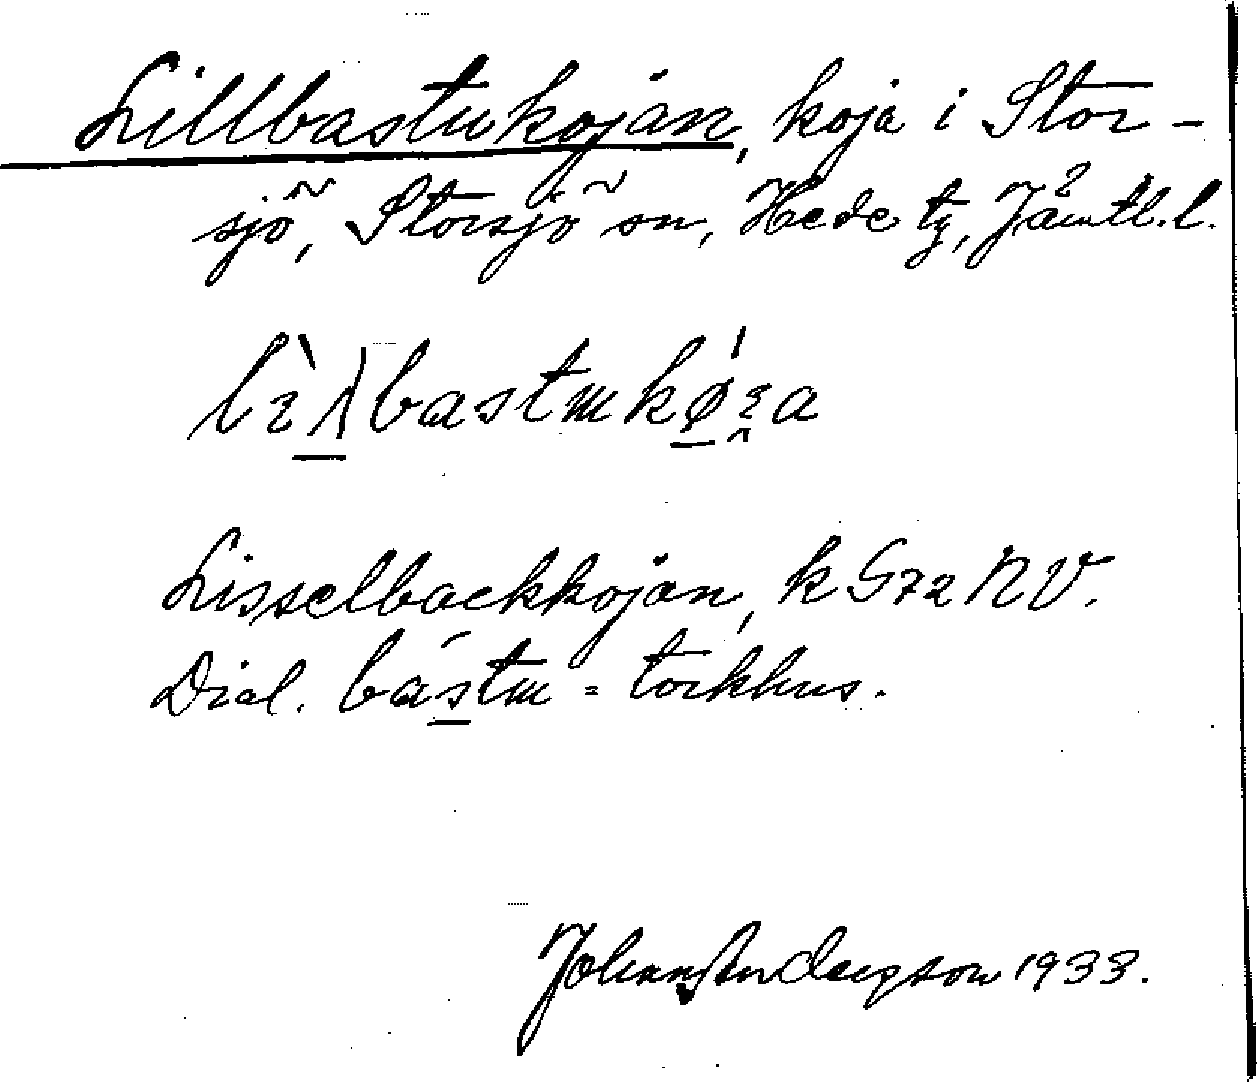 Lillbastukojan, koja i Stor-
sjö, Storsjö sn, Hede tg, Jämtl. l.
Lisselbackkojan, k G72 NV.
Dial. bástɯ = torkhus.
Johan Anderson 1933.